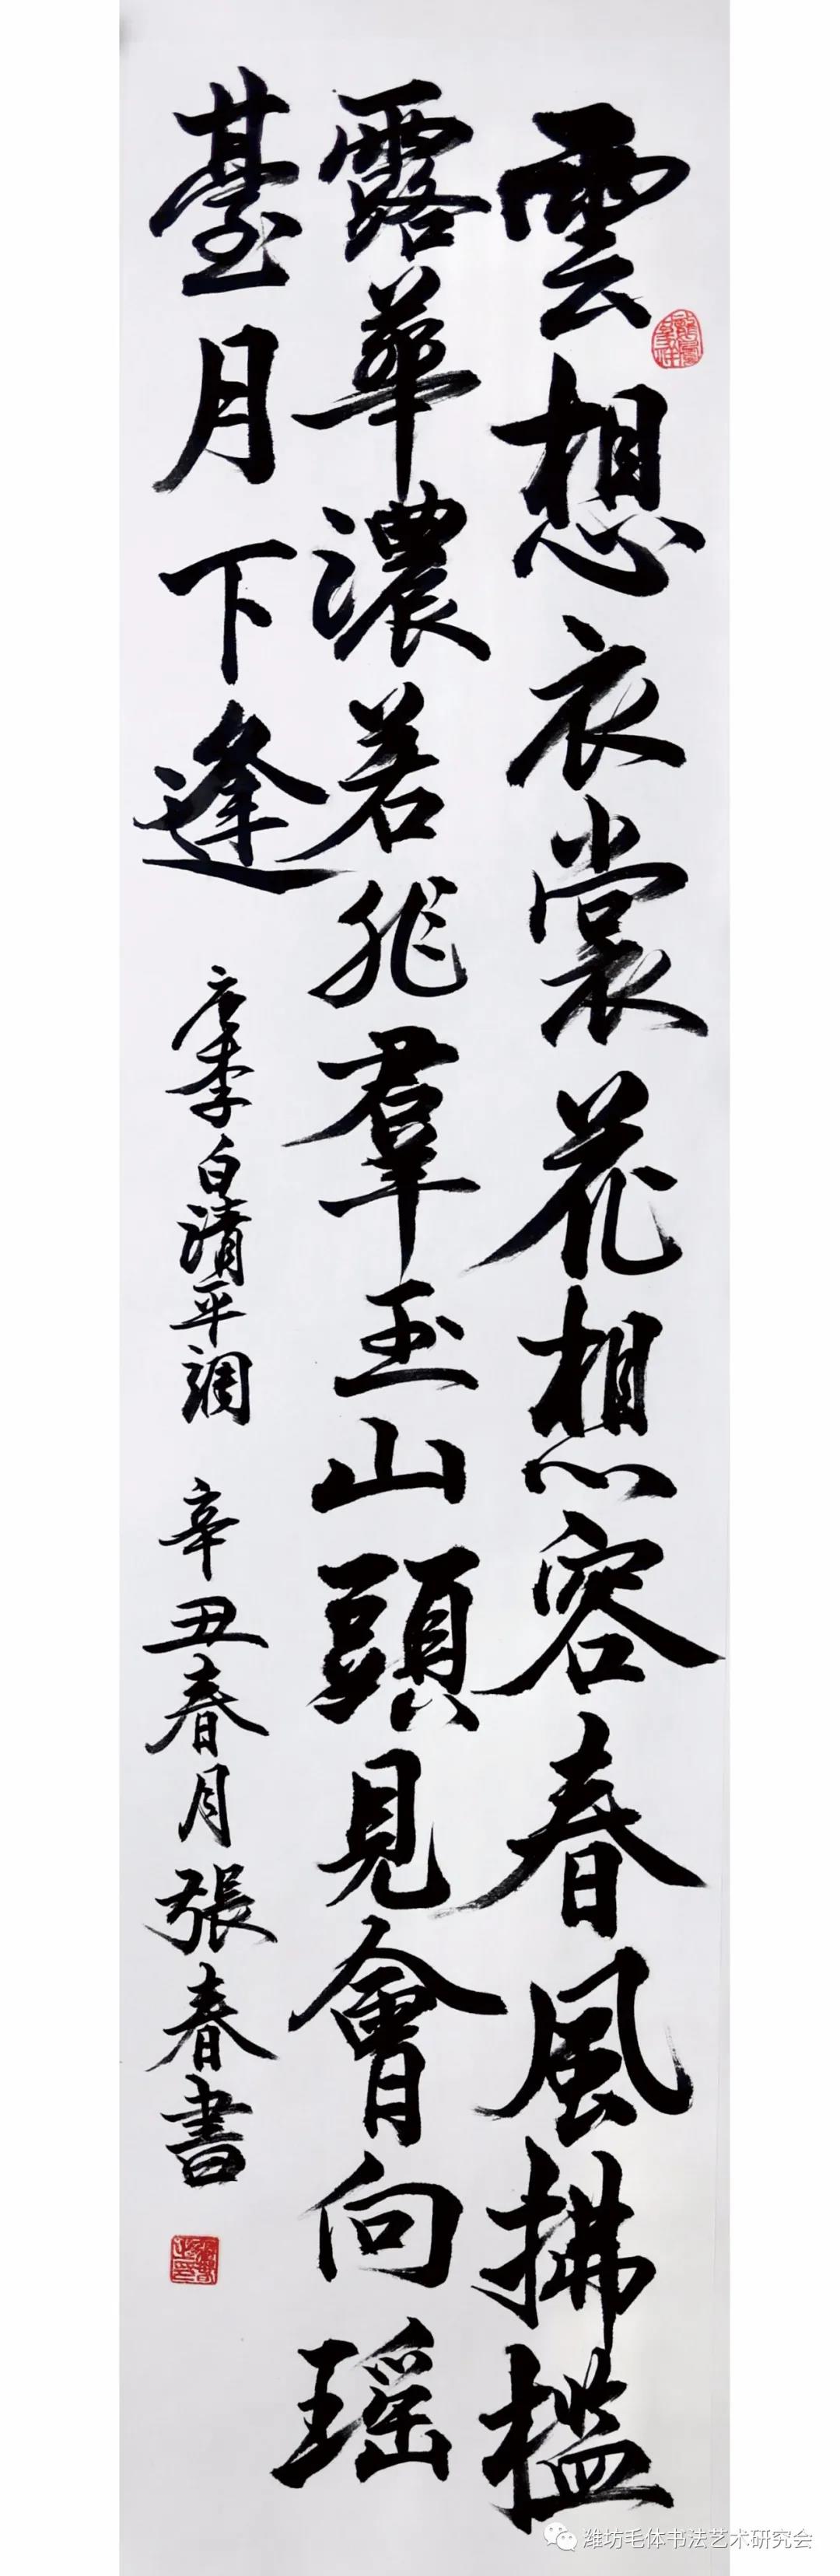 雲想衣裳花想容春風拂檻
露華濃若非羣玉山頭見會向瑶
臺月下逢
唐李白清平調 辛丑春月張春書
潍坊毛体书法艺术研究会